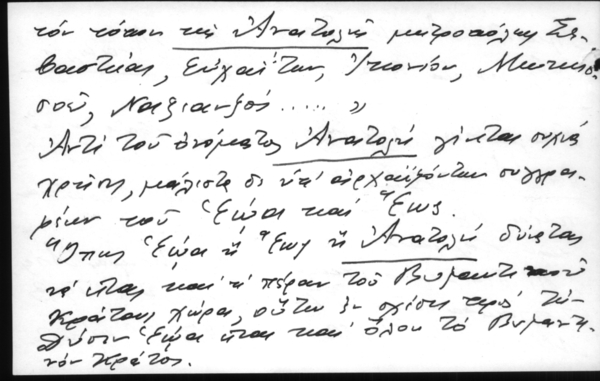 τόν τόπον τῆς Ἀνατολῆς μητροπόλεις Σε-
βαστείας, Εὐχαΐτων, Ἰκονίου, Μωκησ-
σοῦ, Ναζιανζοῦ ..... »
Ἀντί τοῦ ὀνόματος Ἀνατολή γίνεται συχνά
χρῆσις, μάλιστα δέ ὑπ' ἀρχαϊζόντων συγγρα-
φέων τοῦ Ἑῴα καί Ἕως.
Ὅπως Ἑῴα ἤ Ἕως ἤ Ἀνατολή δύναται
νά εἶναι καί ἡ πέραν τοῦ Βυζαντινοῦ
Κράτους χώρα, οὕτω ἐν σχέσει πρός
Δύσιν Ἑῴα εἶναι καί ὅλον τό Βυζαντι-
νόν Κράτος.